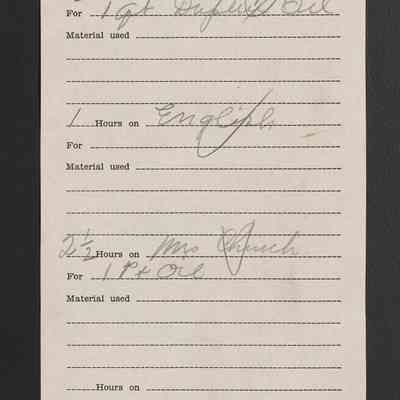 For 1 qt Oil
Material used
1 Hours on English
For
Material used
2 1/2 Hours on Mrs Church
For 1 Pt Oil
Material used
Hours on